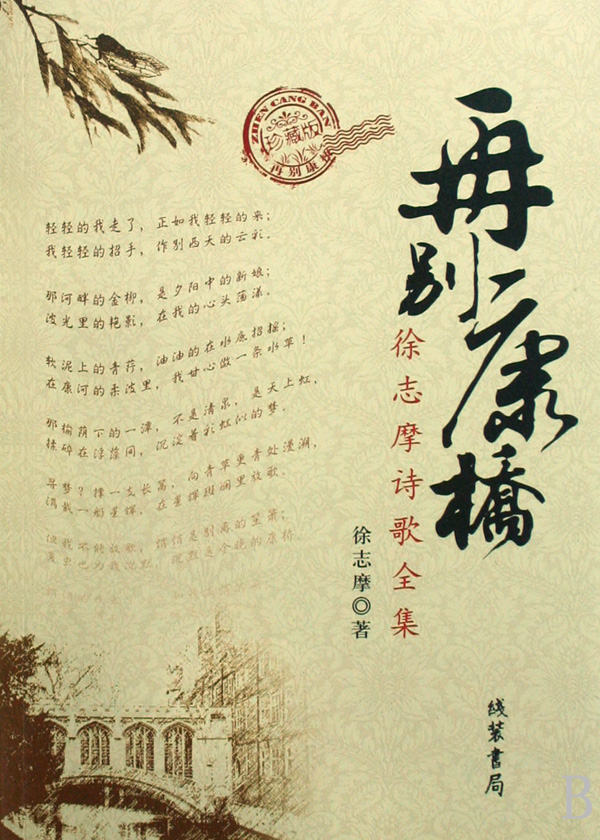 ZHEN CANG BAN
珍藏版
再别康桥
再别康橋
徐志摩诗歌全集
徐志摩◎著
轻轻的我走了，正如我轻轻的来；
我轻轻的招手，作别西天的云彩。
那河畔的金柳，是夕阳中的新娘；
波光里的艳影，在我的心头荡漾。
软泥上的青荇，油油的在水底招摇；
在康河的柔波里，我甘心做一条水草！
那榆荫下的一潭，不是清泉，是天上虹，
揉碎在浮藻间，沉淀着彩虹似的梦。
寻梦？撑一支长篙，向青草更青处漫溯，
满载一船星辉，在星辉斑斓里放歌。
但我不能放歌，悄悄是别离的笙箫；
夏虫也为我沉默，沉默是今晚的康桥。
线装書局
B